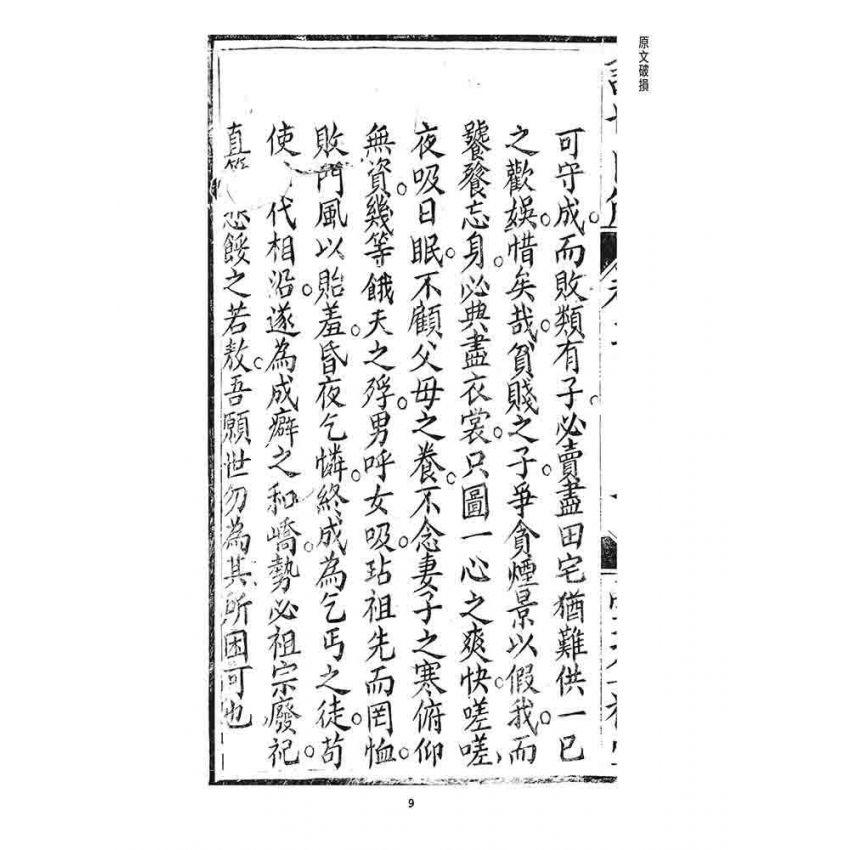 原文破損
可守成。而敗類有子。必賣盡田宅猶難供一已
之歡娛。惜矣哉。貧賤之子。爭貪煙景以假我。而
饕餮忘身。必典盡衣裳。只圖一心之爽快。嗟嗟
夜吸日眠。不顧父母之養。不念妻子之寒。俯仰
無資。幾等餓夫之殍。男呼女吸。玷祖先而罔恤。
敗門風以貽羞。昏夜乞憐。終成為乞丐之徒。苟
使代相沿。遂為成癖之和嶠。勢必祖宗廢祀。
直餒之若敖。吾願世勿為其所困可也
9